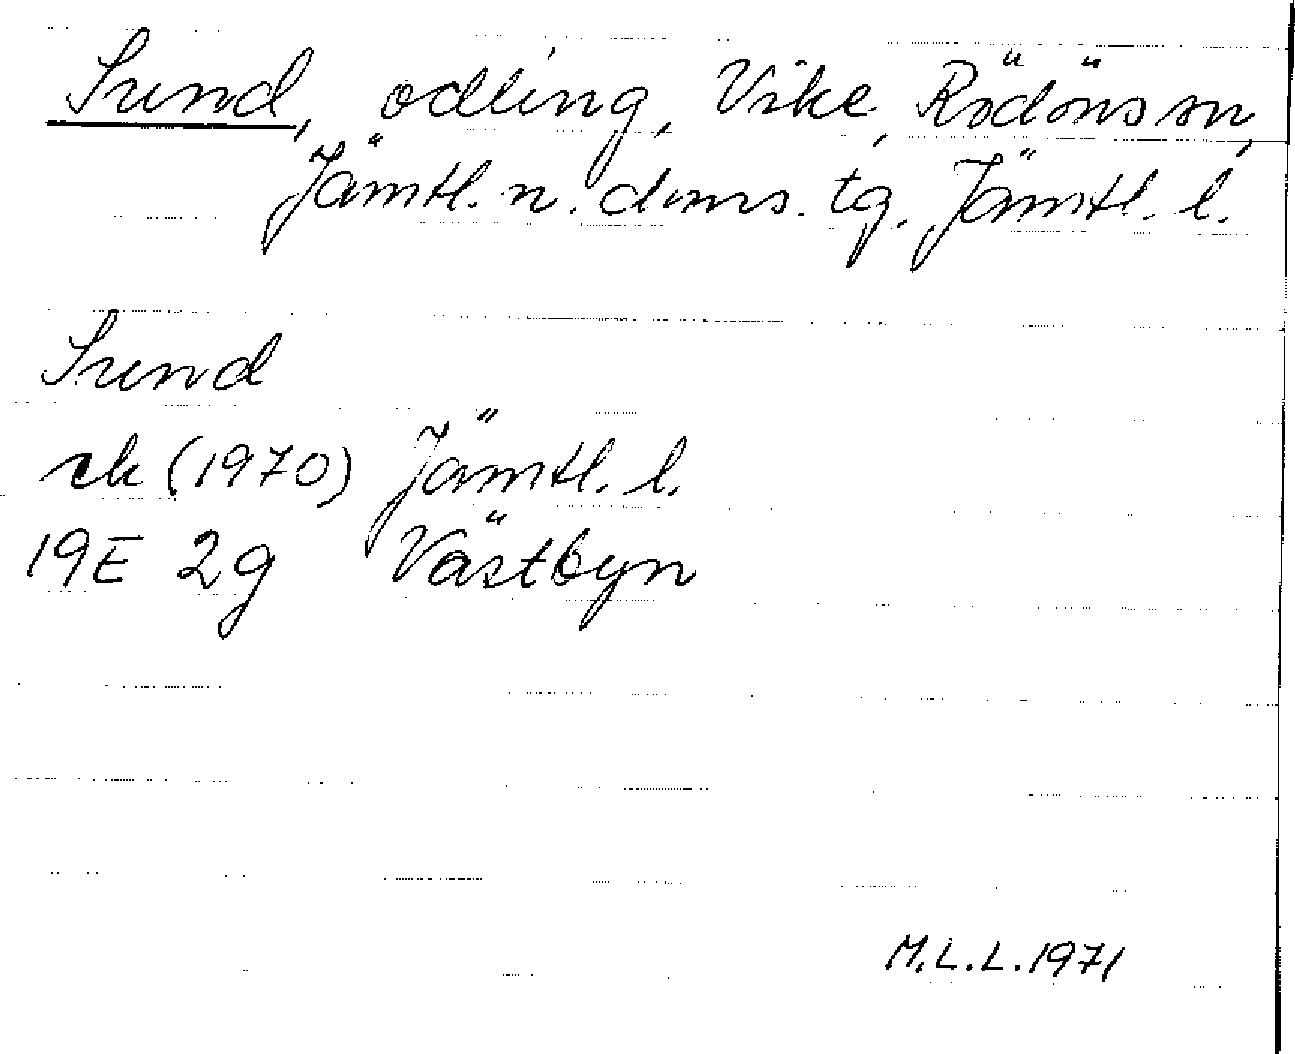 Sund, odling, Vike, Rödöns sn,
Jämtl. n. doms. tg. Jämtl. l.
Sund
rek (1970) Jämtl. l.
19E 2g Västbyn
M.L.L. 1971